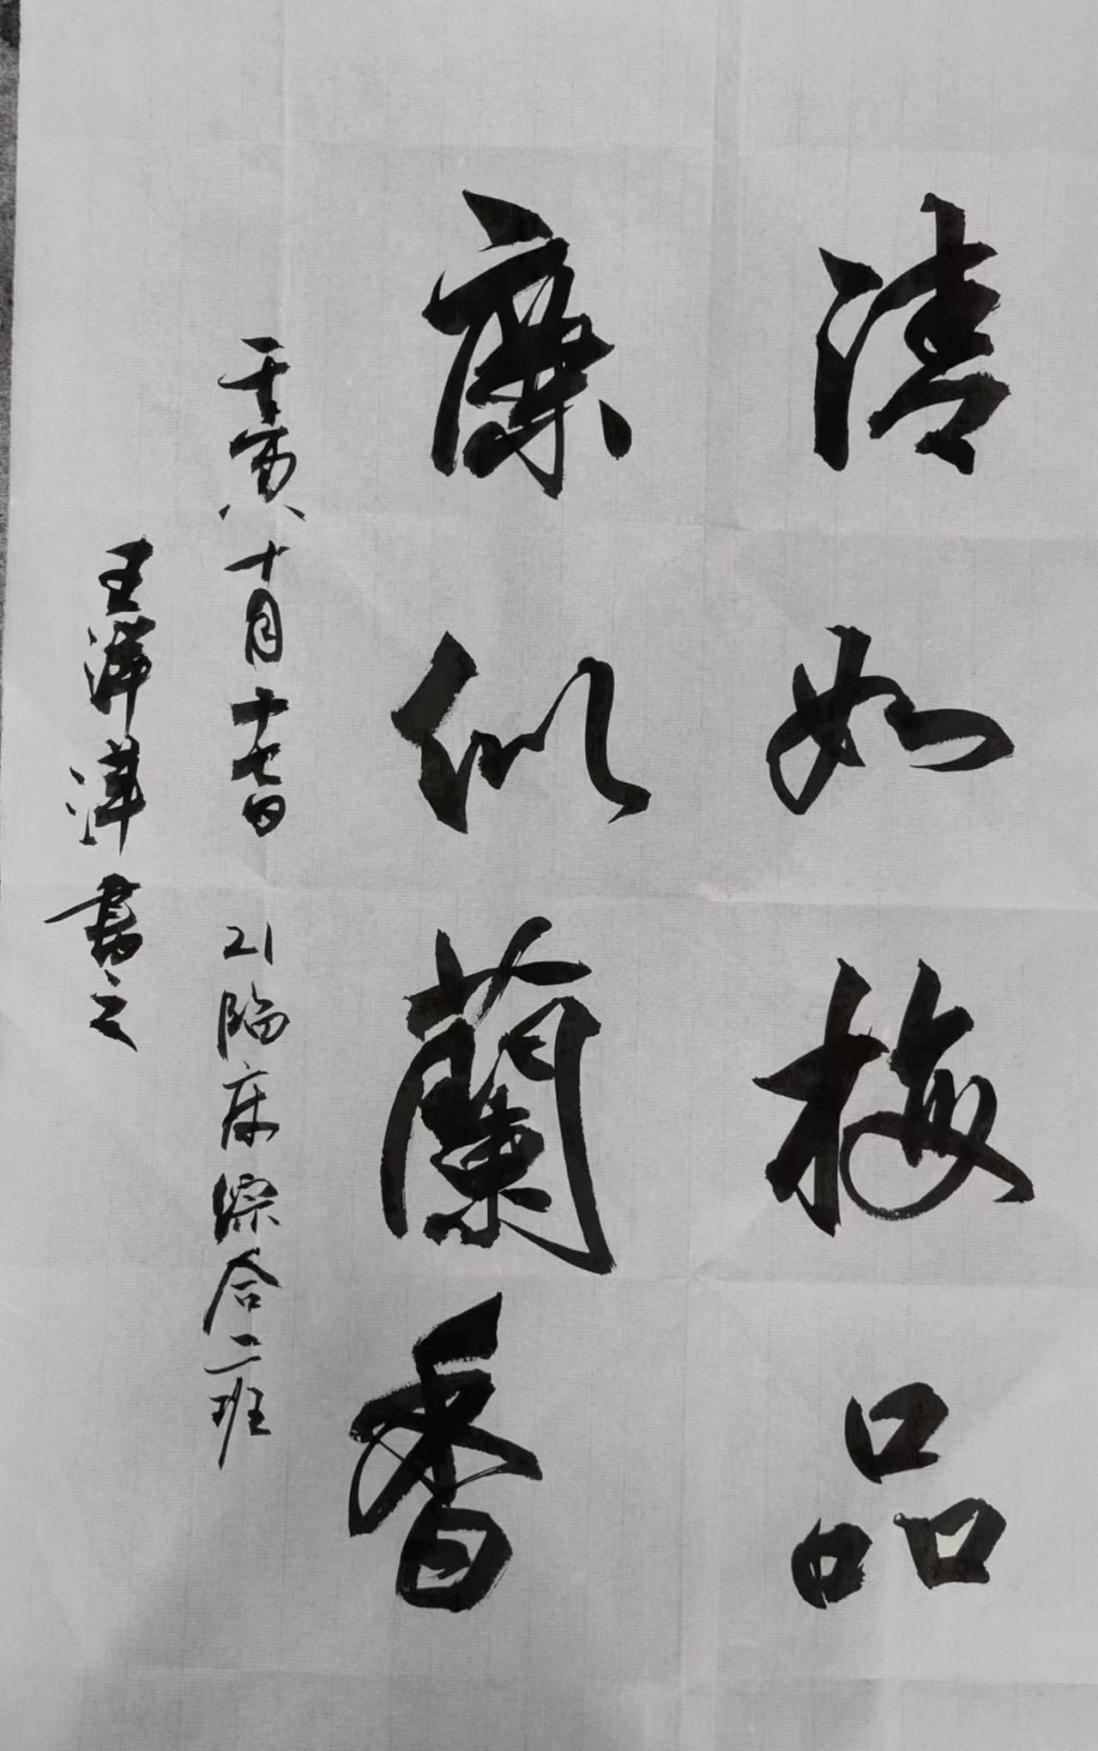 清如梅品
廉似蘭香
壬寅八十月十七日 21临床综合二班
王洋洋書之